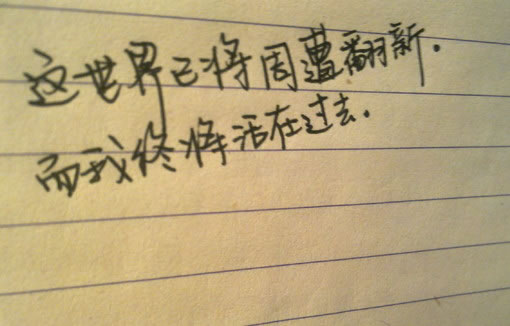 这世界已将周遭翻新.
而我终将活在过去.